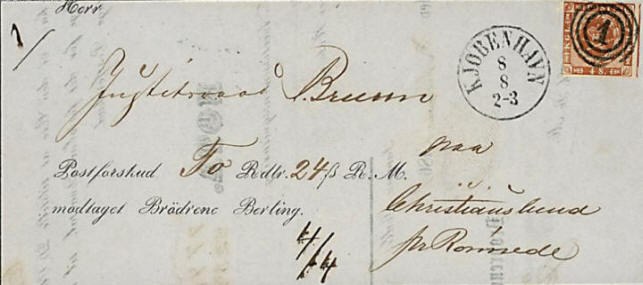 Herr
1/
Justitsraad Bruun
KJØBENHAVN
8
8
2-3
1
4 S.
paa
Postforskud To Rdlr. 24 ß R. M.
modtaget Brödrene Berling.
Christianslund
pr Rönnede
4/14